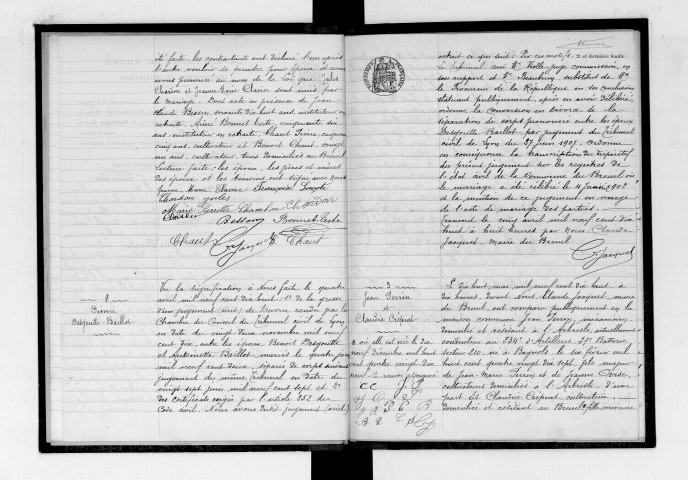 été faite, les contractants ont déclaré l'un après
l'autre vouloir se prendre pour époux et nous
avons prononcé au nom de la Loi que Jules
Chardon et Jeanne Marie Clavier sont unis par
le mariage. Dont acte en présence de Jean
Claude Besson soixante dix huit ans instituteur en
retraite, Aimé Bonnet Leste, cinquante six
ans, instituteur en retraite, Chaut Pierre, cinquante
cinq ans, cultivateur et Benoit Chaut, vingt
un ans, cultivateur, tous domiciliés au Breuil
Lecture faite, les époux, les pères et mères
des époux et les témoins ont signé avec nous
Jeanne Marie Clavier
Chardon Jules
Marie Pierrette Chambon Chardon
Clavier
Besson Bonnet
Chaut Cl Jacquet Chaut
2
Divorce
Desgoutte - Baillot
Vu la signification à Nous faite le quatre
avril mil neuf cent dix huit 1° de la grosse
d'un jugement (ext.) de Divorce rendu par la
Chambre du Conseil du Tribunal civil de Lyon
en date du vingt deux novembre mil neuf
cent dix, entre les époux Benoit Desgoutte
et Antoinette Baillot mariés le quatre juin
mil neuf cent deux, séparés de corps suivant
jugement du même tribunal en date du
vingt sept juin mil neuf cent sept et 2°
des certificats exigés par l'article 252 du
Code civil. Nous avons dudit jugement (ext.)
extrait ce qui suit: Par ces motifs
2 et dernière feuille
le tribunal, ouï Mr juge commissaire, en
son rapport et Mr substitut de Mr
le Procureur de la République en ses conclusions
statuant publiquement, après en avoir délibéré,
ordonne la conversion en divorce de la
séparation de corps prononcée entre les époux
Desgoutte Baillot par jugement du Tribunal
civil de Lyon du 27 juin 1907. Ordonne
en conséquence la transcription du dispositif
du présent jugement sur les registres de
l'état civil de la Commune du Breuil où
le mariage a été célébré le 4 juin 1902
et la mention de ce jugement en marge
de l'acte de mariage des parties.
Transcrit le cinq avril mil neuf cent dix
huit à huit heures par Nous Claude
Jacquet, Maire du Breuil
Cl Jacquet
3
Jean Perrin
et
Claudia Crépeat
Le dix huit mai mil neuf cent dix huit à
dix heures, devant Nous Claude Jacquet, maire
du Breuil, ont comparu publiquement en la
maison commune Jean Perrin, mécanicien,
domicilié et résidant à l'Arbresle, actuellement
conducteur au d'Artillerie Batterie
né à Bagnols le six février mil
huit cent quatre vingt dix sept, fils majeur
de Jean Marie Perrin et de Jeanne
cultivateurs domiciliés à l'Arbresle. D'une
part. Et Claudia Crépeat, cultivatrice,
domiciliée et résidant au Breuil fille mineure
où elle est née le dix
neuf décembre mil huit
cent quatre vingt dix
neuf.